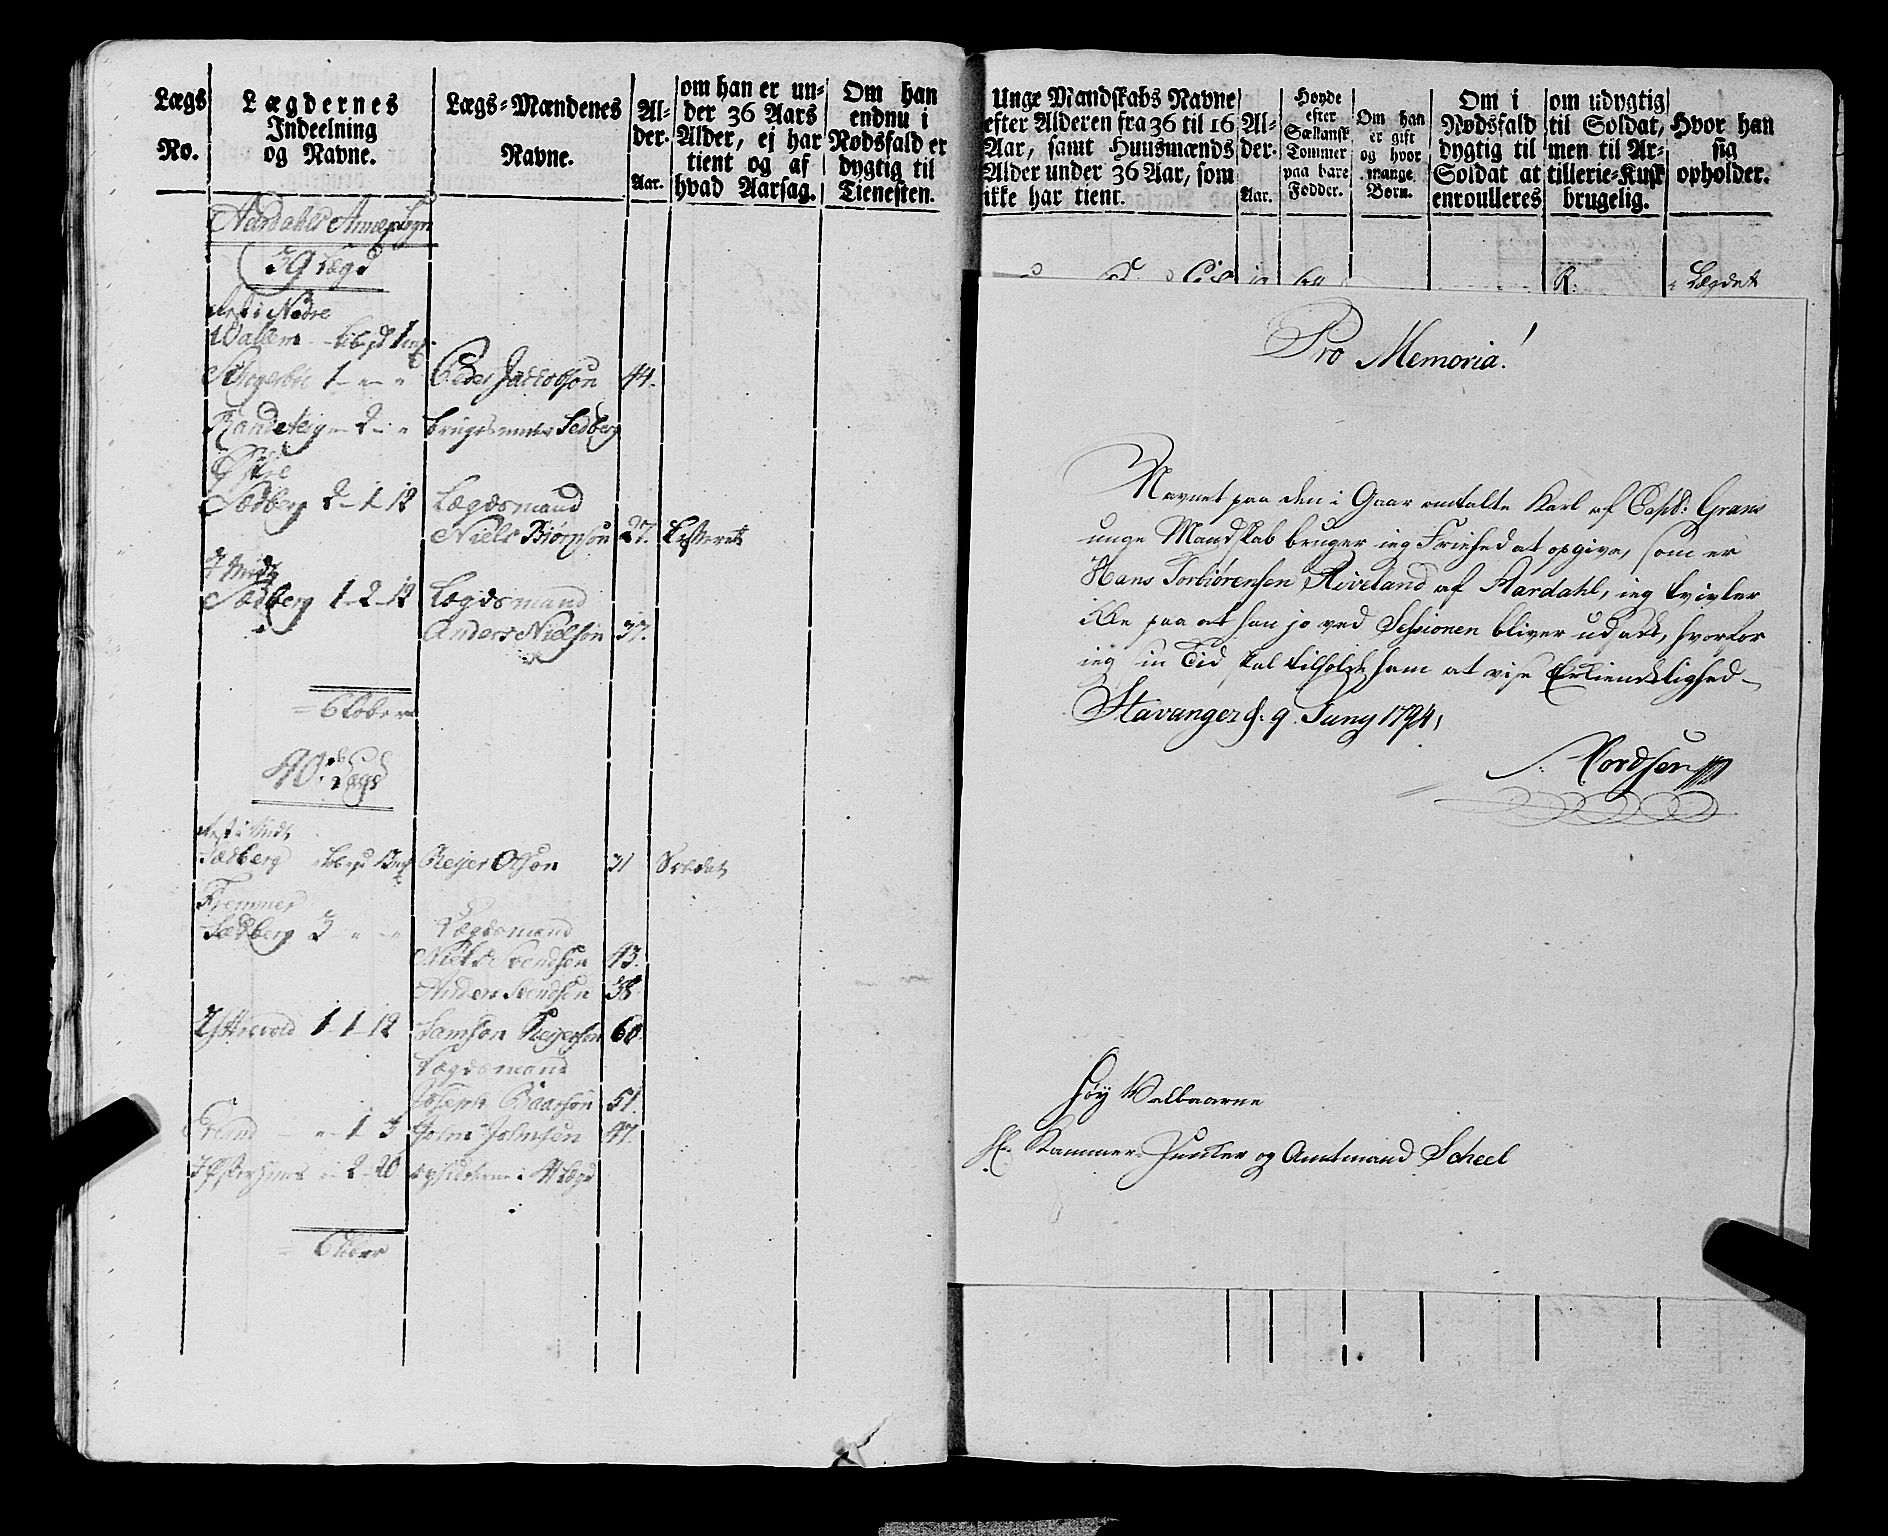 Lægs No.
Lægdernes Indeelning og Navne.
Lægs-Mændenes Navne.
Alder. Aar.
om han er under 36 Aars Alder, ej har tient og af hvad Aarsag.
Om han endnu i Nødsfald er dygtig til Tienesten.
Aardahls Annex Sogn
39 Lægd
Rest i Nedre
Wallem
1 Peder Jacobson 44.
Randeberg 2 brugesunder Sedberg
Østre
Sædberg 2 1 12 Lægdsmand
Niels Biørnson 27.
Sædberg 1 2 12 Lægdsmand
Anders Nielson 37.
6 Løber
40 Lægd
Sædberg Reijer Olson 31 Soldat
Fremmer
Sædberg 3 Lægdsmand
Niels Svendsen 43.
Anders Svendsen 38
1 1 12 Samson Reijerson 60
Lægdsmand
Joseph Baarson 51.
1 3 John Johnsen 47.
2 20 opsidderne i 41 Lægd
6 Løber
Unge Mandskabs Navne efter Alderen fra 36 til 16 Aar, samt Huusmænds Alder under 36 Aar, som ikke har tient.
Alder. Aar.
Høyde efter Siællansk Tommer paa bare Fødder.
Om han er gift og hvor mange Børn.
Om i Nødsfald dygtig til Soldat at enroulleres
om udygtig til Soldat, men til Artillerie-Kusk brugelig.
Hvor han sig opholder.
R. Lægdet
Pro Memoria!
Navnet paa den i Gaar omtalte Karl af Capt: Grans
unge Mandskab bruger ieg Friehed at opgive, som er
Hans Torbiørensen Riveland af Aardahl, ieg tvivler
ikke paa at han jo ved Sessionen bliver udsatt, hvorfor
ieg in Tid skal tilholde ham at vise Erkiendtlighed
Stavanger d: 9. Juny 1794,
Høy Velbaarne
Hr. Kammer-Junker og Amtmand Scheel